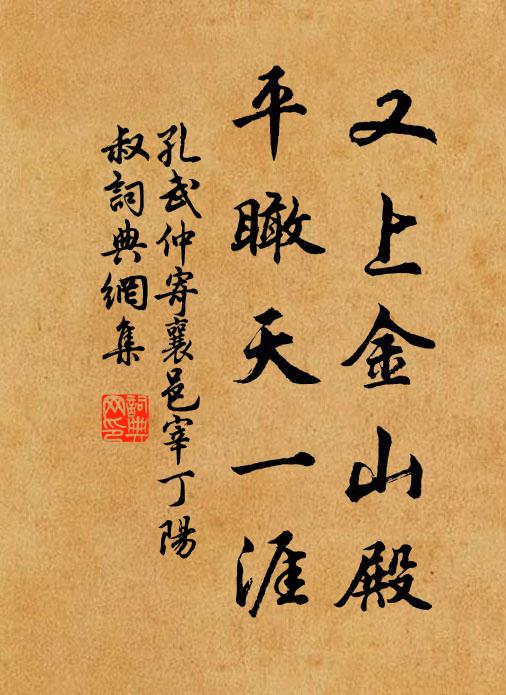 又上金山殿
平瞰天一涯
孔武仲寄襄邑宰丁陽
叔詞典網集
詞典
网印